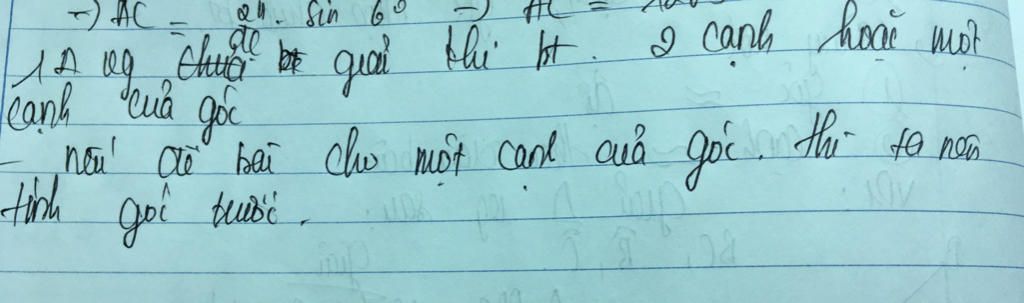 →) AC = 24 . Sin 6° →) AC =
1 Δ vg để giải thì bt . 2 cạnh hoặc một
cạnh cuả góc
- nếu đề bài cho một cạnh cuả góc . thì ta nên
tính góc trước .